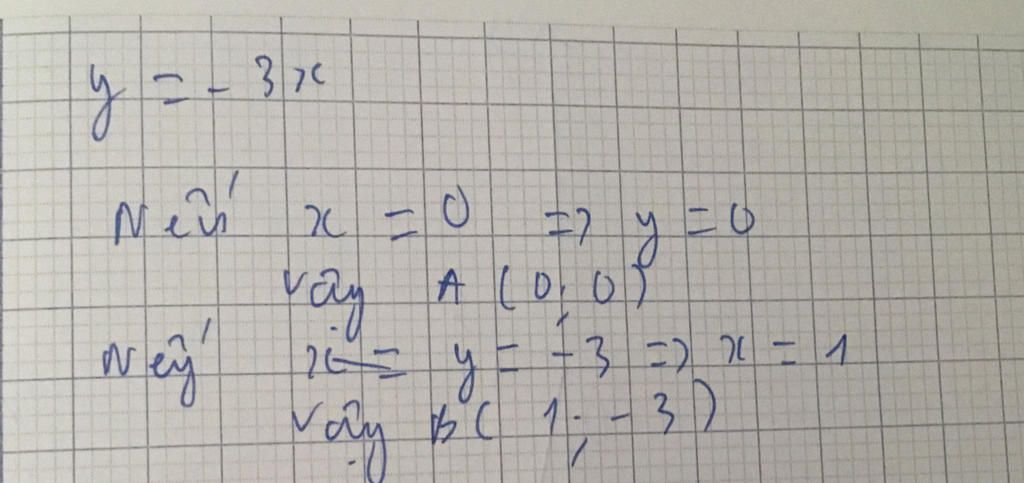 y = - 3x
Nếu x = 0 => y = 0
Vậy A (0; 0)
Nếu x = y = -3 => x = 1
Vậy B( 1; -3)